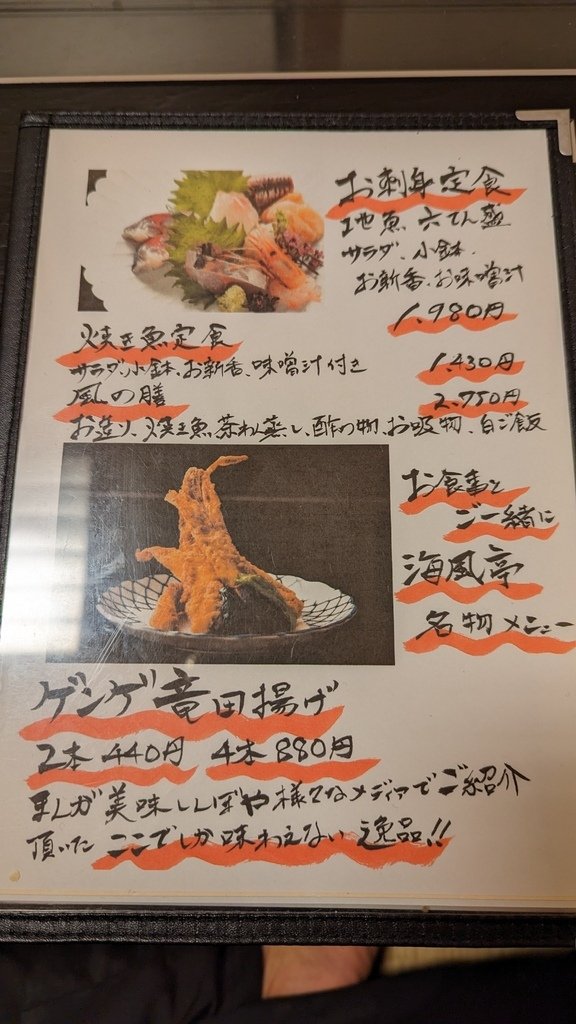 お刺身定食
地魚 六てん盛
サラダ、小鉢、
お新香、お味噌汁
1,980円
焼き魚定食
サラダ、小鉢、お新香、味噌汁付き 1,430円
風の膳 2,750円
お造り、焼き魚、茶わん蒸し、酢の物、お吸物、白ご飯
お食事と
ご一緒に
海風亭
名物メニュー
ゲンゲ竜田揚げ
2本 440円 4本 880円
まんが美味しんぼや様々なメディアでご紹介
頂いた ここでしか味わえない 逸品!!